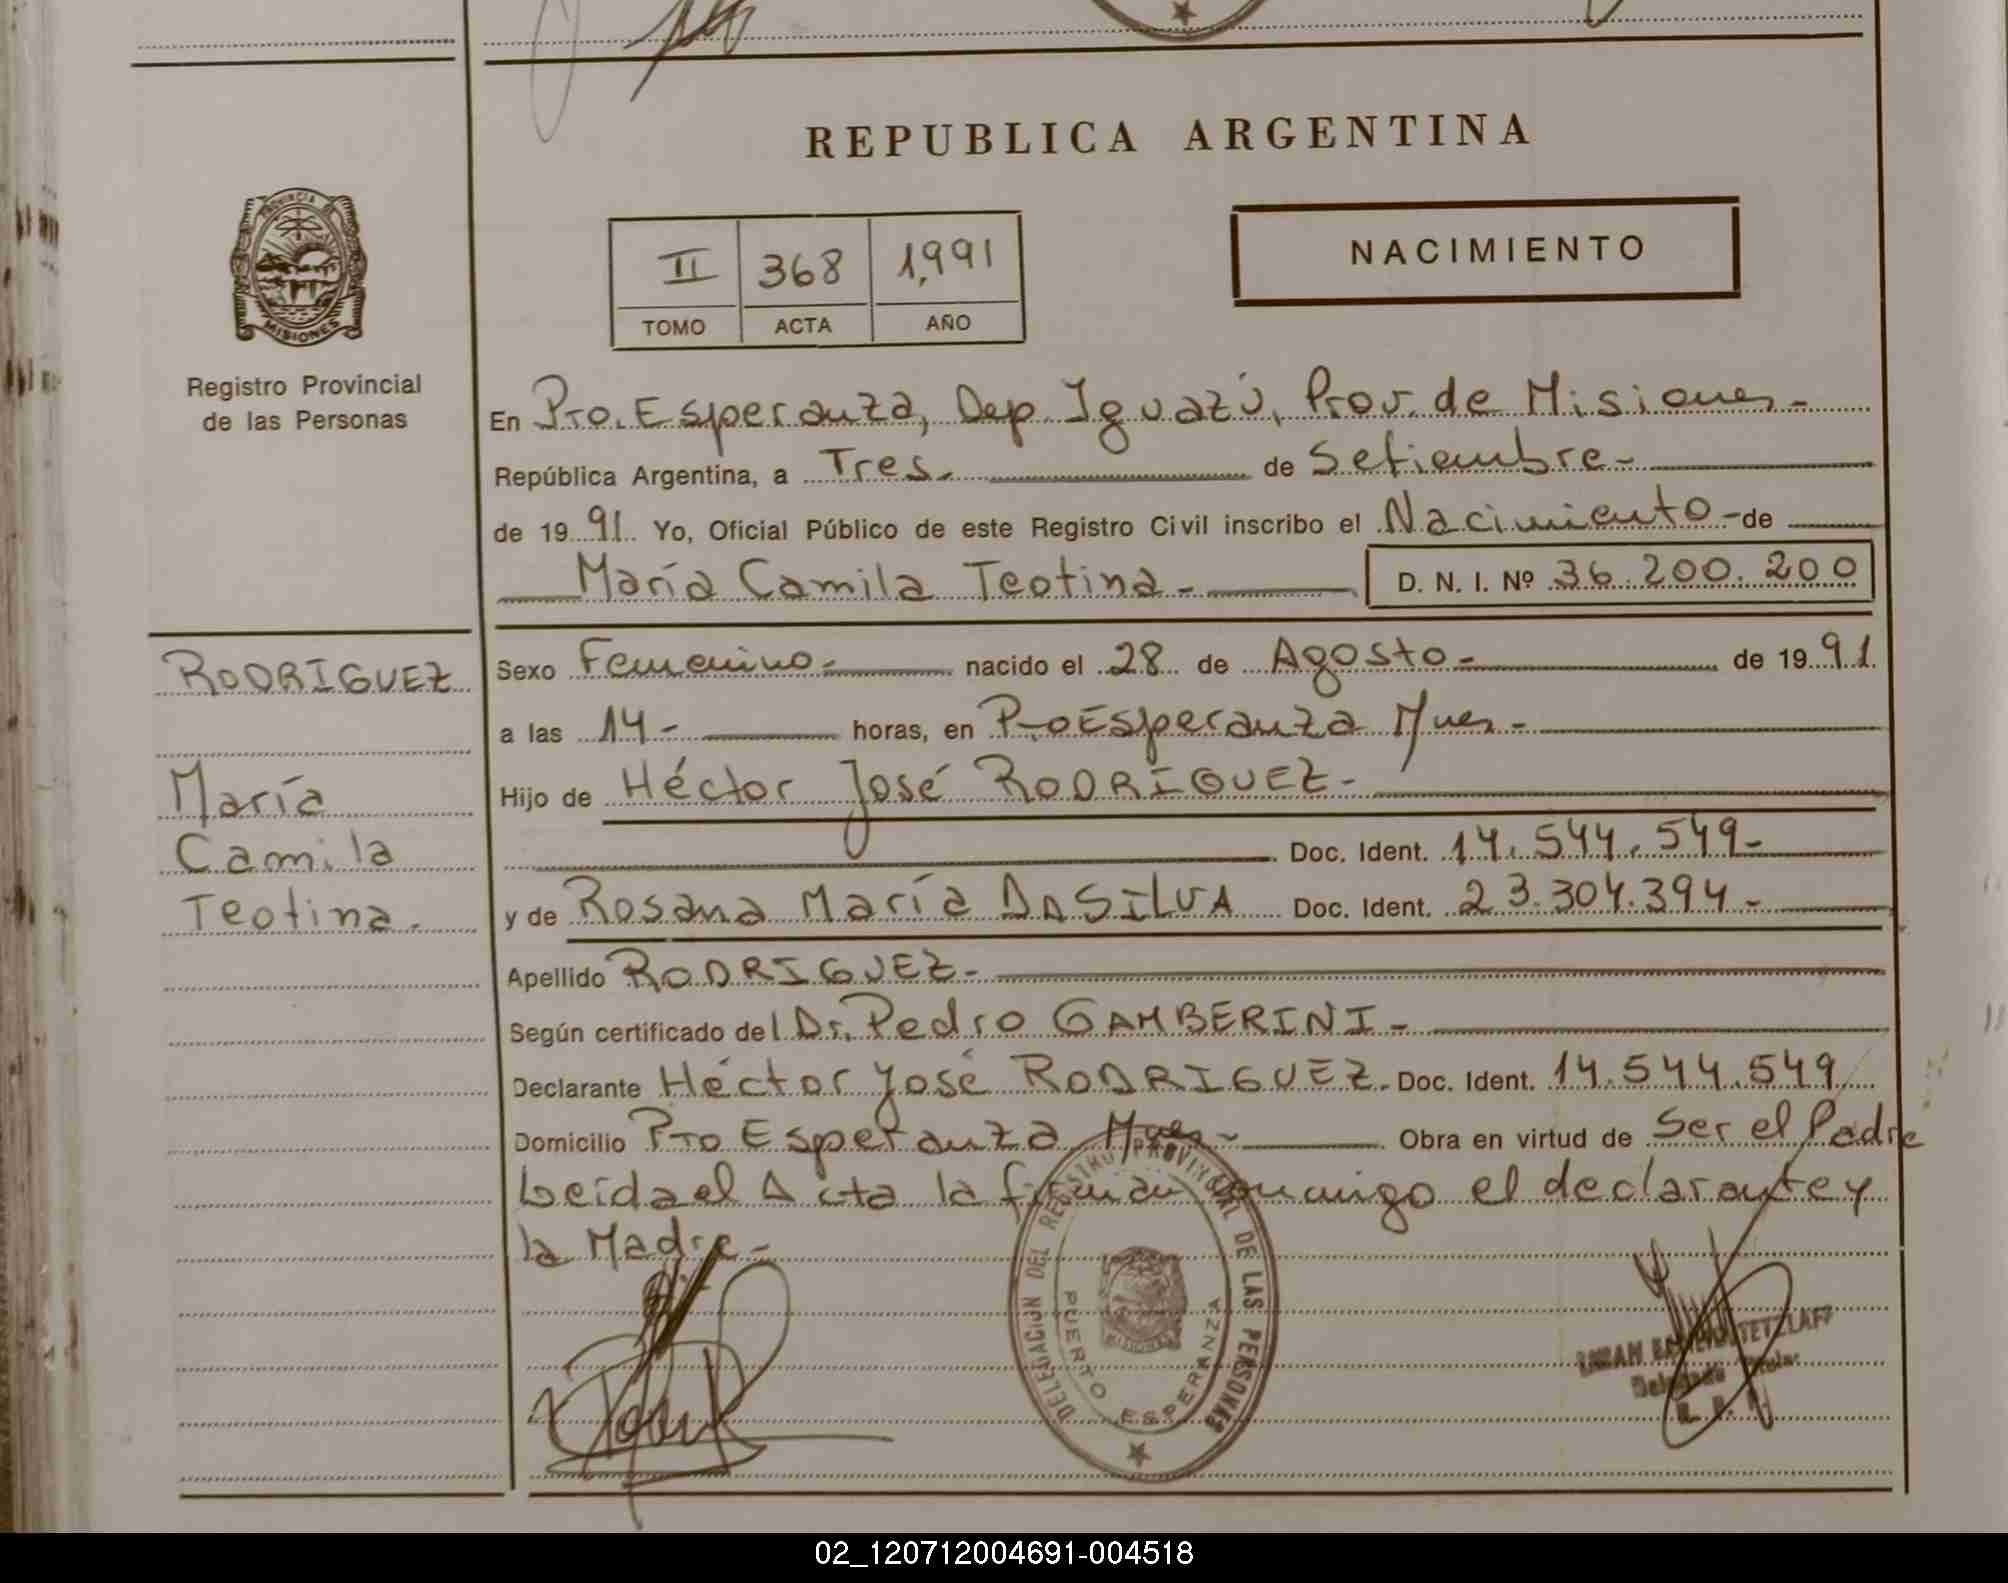 REPUBLICA ARGENTINA
PROVINCIA DE
MISIONES
Registro Provincial
de las Personas
NACIMIENTO
II 368 1,991
TOMO ACTA AÑO
En Pto. Esperanza, Dep. Iguazú, Prov. de Misiones-
República Argentina, a Tres. de Setiembre-
de 1991. Yo, Oficial Público de este Registro Civil inscribo el Nacimiento-de
María Camila Teotina- D. N. I. Nº 36.200.200
RODRIGUEZ
María
Camila
Teotina.
Sexo Femenino- nacido el 28 de Agosto- de 1991.
a las 14- horas, en Pto Esperanza Mnes-
Hijo de Héctor José RODRÍGUEZ-
Doc. Ident. 14.544.549-
y de Rosana María DASILVA Doc. Ident. 23.304.394-
Apellido RODRIGUEZ-
Según certificado del Dr. Pedro GAMBERINI-
Declarante Héctor José RODRIGUEZ. Doc. Ident. 14.544.549
Domicilio Pto Esperanza Mnes- Obra en virtud de Ser el Padre
Leída el Acta la firman conmigo el declarante y
la Madre-
DELEGACION DEL REGISTRO PROVINCIAL DE LAS PERSONAS
PUERTO ESPERANZA
MISIONES
TETZLAFF
Delegado Titular
R. P. P.
02_120712004691-004518